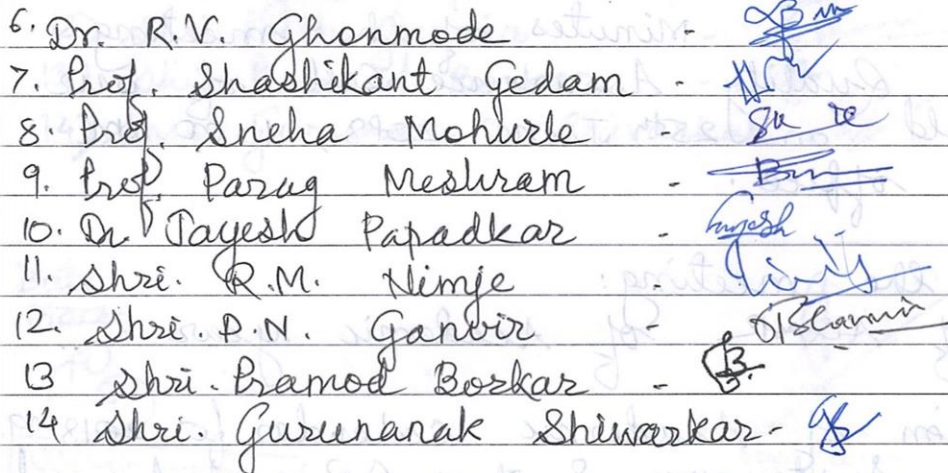 6. Dr. R.V. Ghonmode -
7. Prof. Shashikant Gedam -
8. Prof. Sneha Mohurle -
9. Prof. Parag Meshram -
10. Dr Jayesh Papadkar -
11. Shri. R.M. Nimje -
12. Shri. D.N. Ganvir -
13 Shri. Pramod Borkar -
14 Shri. Gurunanak Shiwarkar -